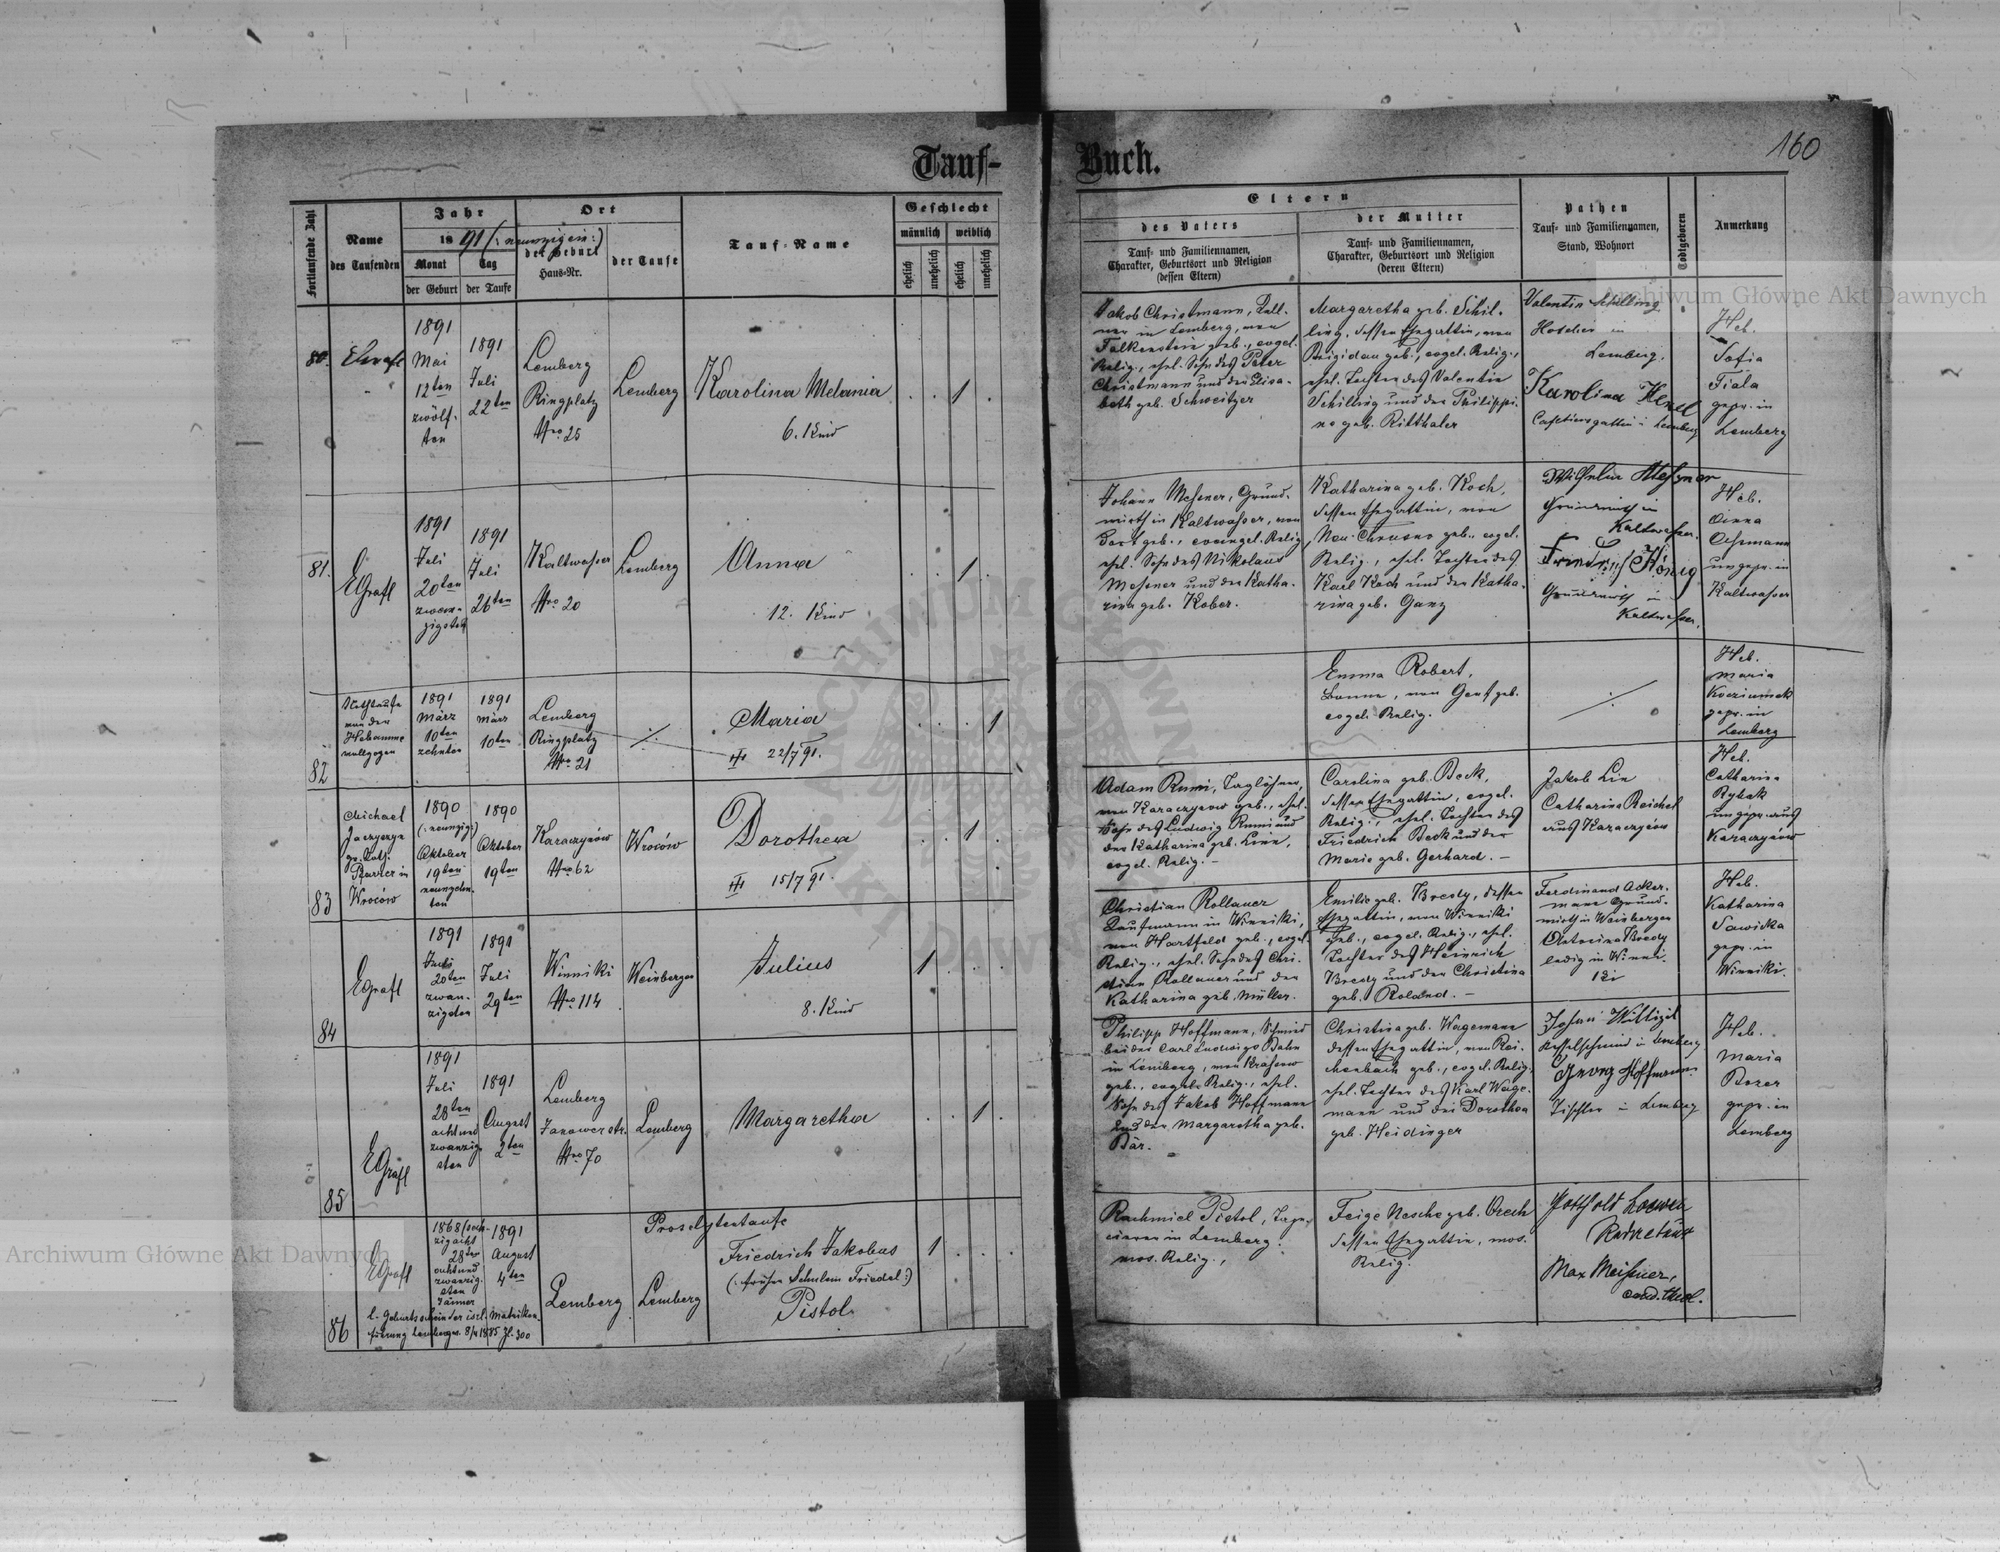 Tauf-
Buch.
160
Fortlaufende Zahl
Name
des Taufenden
Jahr
1891 (: neunzig ein :)
Monat
der Geburt
Tag
der Taufe
Ort
der Geburt
Haus-Nr.
der Taufe
Tauf-Name
Geschlecht
männlich
weiblich
ehelich
unehelich
ehelich
unehelich
Eltern
des Vaters
Tauf- und Familiennamen,
Charakter, Geburtsort und Religion
(dessen Eltern)
der Mutter
Tauf- und Familiennamen,
Charakter, Geburtsort und Religion
(deren Eltern)
Pathen
Tauf- und Familiennamen,
Stand, Wohnort
Todtgeboren
Anmerkung
80.
1891
Mai
12ten
zwölf-
ten
1891
Juli
22ten
Lemberg
Ringplatz
Nro 25
Lemberg
Karolina Melania
6. Kind
1
Jakob Christmann, Kell-
ner in Lemberg, von
Falkenstein geb., evgel.
Relig., ehel. Sohn des Peter
Christmann und der Elisa-
beth geb. Schweitzer
Margaretha geb. Schil-
ling, dessen Ehegattin, von
Brigidau geb., evgel. Relig.,
ehel. Tochter des Valentin
Schilling und der Philippi-
ne geb. Ritthaler
Valentin Schilling
in
Lemberg.
Karolina
Lemberg
Heb.
Sofia
Fiala
gepr. in
Lemberg
81.
EGrafl
1891
Juli
20ten
zwan-
zigsten
1891
Juli
26ten
Kaltwasser
Nro 20
Lemberg
Anna
12. Kind
1
Johann Messner, Grund-
wirth in Kaltwasser, von
dort geb., evangel. Relig.
ehel. Sohn des Nikolaus
Messner und der Katha-
rina geb. Kober.
Katharina geb. Koch,
dessen Ehegattin, von
Neu-Chrusno geb., evgel.
Relig., ehel. Tochter des
Karl Koch und der Katha-
rina geb. Ganz
Wilhelm Messner
Grundwirth in
Kaltwasser.
Friedrich König
Grundwirth in
Kaltwasser.
Heb.
Anna
ungepr. in
Kaltwasser
82
Nothtaufe
von der
Hebamme
vollzogen
1891
März
10ten
zehnten
1891
März
10ten
Lemberg
Ringplatz
Nro 21
./.
Maria
22/7 91.
1
Emma Robert,
Bonne, von Genf geb.
evgel. Relig.
./.
Heb.
Maria
gepr. in
Lemberg
83
Michael
gr. kath.
Pfarrer in
Wroców
1890
(: neunzig :)
Oktober
19ten
neunzehn-
ten
1890
Oktober
19ten
Karaczynów
Nro 62
Wroców
Dorothea
15/7 91.
1
Adam Rumi, Taglöhner,
von Karaczynow geb., ehel.
Sohn des Ludwig Rumi und
der Katharina geb. Linn,
evgel. Relig. –
Carolina geb. Beck,
dessen Ehegattin, evgel.
Relig., ehel. Tochter des
Friedrich Beck und der
Marie geb. Gerhard. –
Jakob Lin
Catharina Reichel
aus Karaczynów
Heb.
Catharina
Rybak
ungepr. aus
Karaczynów
84
EGrafl
1891
Juli
20ten
zwan-
zigsten
1891
Juli
29ten
Winniki
Nro 114
Weinbergen
Julius
8. Kind
1
Christian Rollauer
Kaufmann in Winniki,
von Hartfeld geb., evgel.
Relig., ehel. Sohn des Chri-
stian Rollauer und der
Katharina geb. Müller.
Emilie geb. Bredy, dessen
Ehegattin, von Winniki
geb., evgel. Relig., ehel.
Tochter des Heinrich
Bredy und der Christina
geb. Roland. –
Ferdinand Acker-
mann Grund-
wirth in Weinbergen
Antonina Bredy
ledig in Winni-
ki
Heb.
Katharina
Sawicka
gepr. in
Winniki.
85
EGrafl
1891
Juli
28ten
acht und
zwanzig-
sten
1891
August
2ten
Lemberg
Janowerstr.
Nro 70
Lemberg
Margaretha
1
Philipp Hoffmann, Schmied
bei der Carl Ludwigs Bahn
in Lemberg, von
geb., evgel. Relig., ehel.
Sohn des Jakob Hoffmann
und der Margaretha geb.
Bär.
Christina geb. Wagemann
dessen Ehegattin, von Rei-
chenbach geb., evgel. Relig.,
ehel. Tochter des Karl Wage-
mann und der Dorothea
geb. Heidinger
Johann
Kesselschmied in Lemberg
Georg Hoffmann
Tischler in Lemberg
Heb.
Maria
gepr. in
Lemberg
86
EGrafl
1868 (sech-
zig acht
28ten
acht und
zwanzig-
sten
Jänner
1891
August
4ten
l. Geburtsschein der isrl. Matriken-
führung Lemberg 1885 Zl. 300
Lemberg
Lemberg
Proselytentaufe
Friedrich Jakobus
(: früher Schulem Friedel :)
Pistol
1
Rachmiel Pistol,
in Lemberg.
mos. Relig.,
Feige Nesche geb. Orech
dessen Ehegattin, mos.
Relig.
Max Meissner,
cand. theol.
Archiwum Główne Akt Dawnych
Archiwum Główne Akt Dawnych